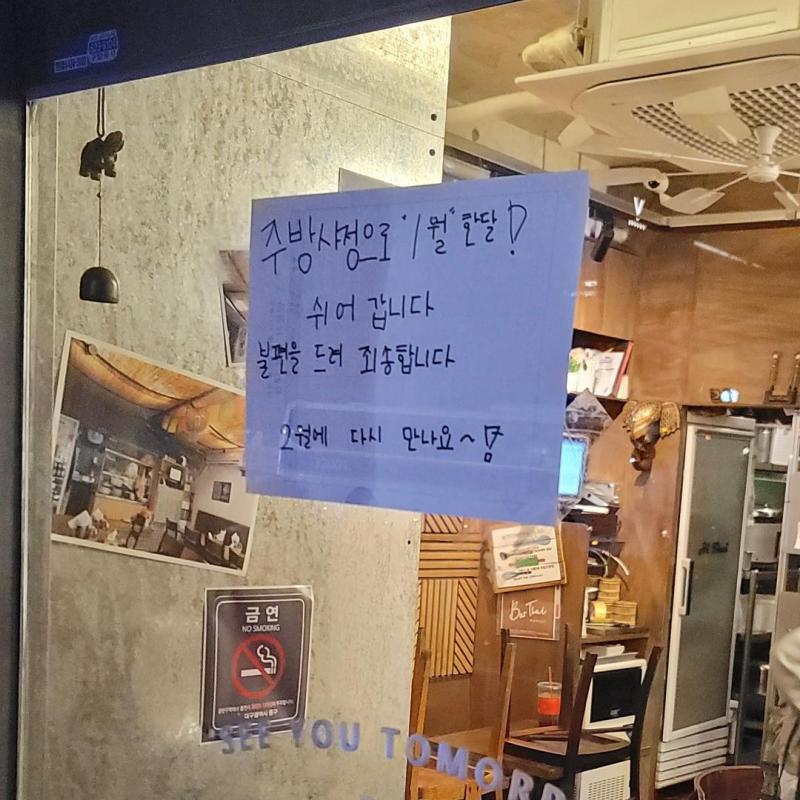 주방사정으로 "1월" 한달!
쉬어 갑니다
불편을 드려 죄송합니다
2월에 다시 만나요~!
금연
NO SMOKING
대구광역시 중구
Bar Thai
SEE YOU TOMORR